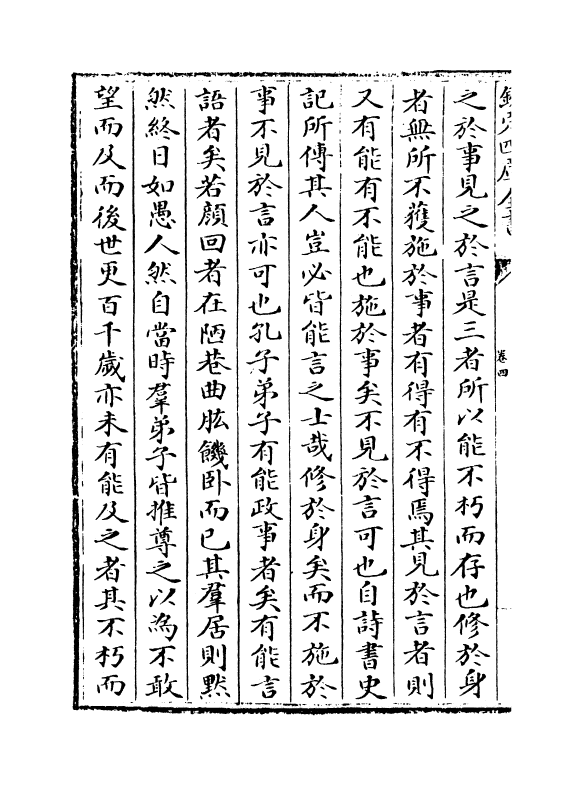 欽定四庫全書
卷四
之於事見之於言是三者所以能不朽而存也修於身
者無所不獲施於事者有得有不得焉其見於言者則
又有能有不能也施於事矣不見於言可也自詩書史
記所傳其人豈必皆能言之士哉修於身矣而不施於
事不見於言亦可也孔子弟子有能政事者矣有能言
語者矣若顔回者在陋巷曲肱饑卧而已其羣居則黙
然終日如愚人然自當時羣弟子皆推尊之以為不敢
望而及而後世更百千歲亦未有能及之者其不朽而